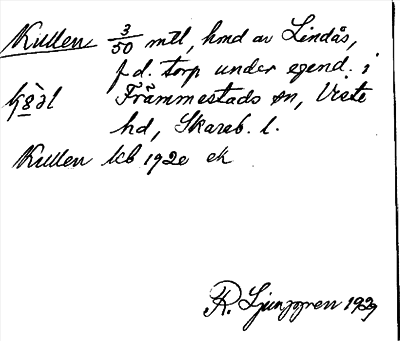 Kullen 3/50 mtl, hmd av Lindås,
f.d. torp under egend. i
Främmestads sn, Viste
hd, Skarab. l.
Kullen kb 1920 ek
R. Ljunggren 1929